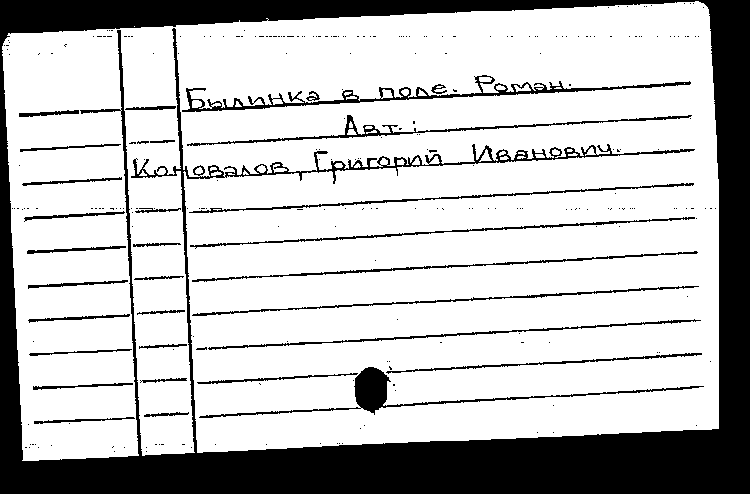 Былинка в поле. Роман.
Авт.:
Коновалов, Григорий Иванович.